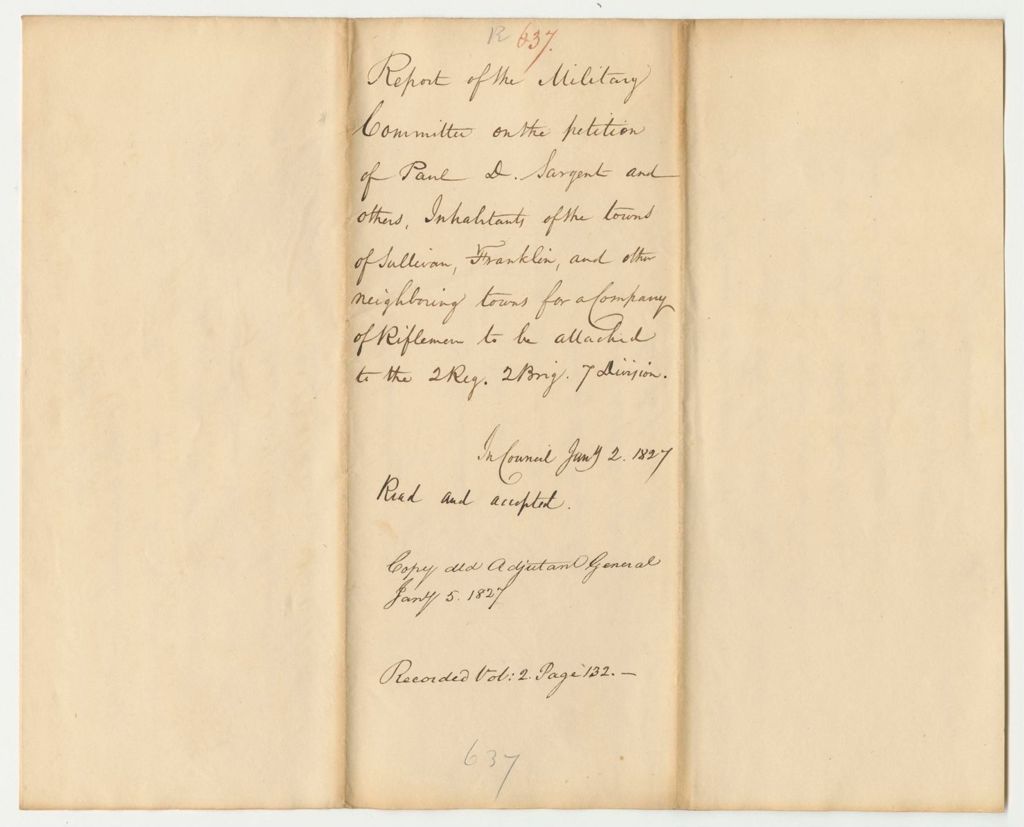 R 637.
Report of the Military
Committee on the petition
of Paul D. Sargent and
others, Inhabitants of the towns
of Sullivan, Franklin, and other
neighboring towns for a Company
of Riflemen to be attached
to the 2 Reg. 2 Brig. 7 Division.
In Council Jany 2. 1827
Read and accepted.
Copy dld Adjutant General
Jany 5. 1827
Recorded Vol: 2. Page 132. —
637